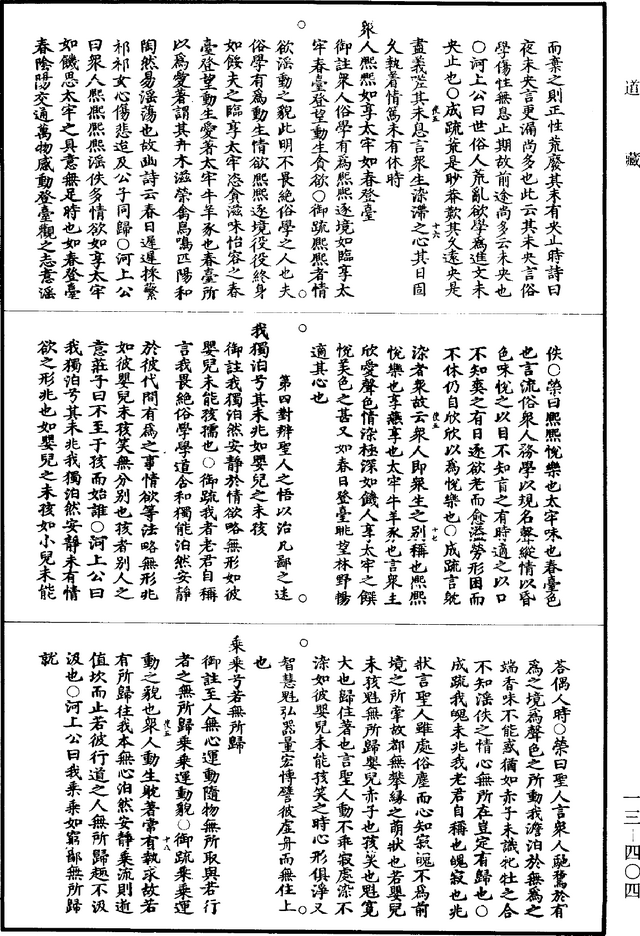 道藏
而棄之則正性荒廢其未有央止時詩曰
夜未央言更漏尚多也此云其未央言俗
學傷性無息止期故前途尚多云未央也
○河上公曰世俗人荒亂欲學為進文未
央止也○成疏荒是眇莽歎其久遠央是
盡義嗟其未息言衆生染滯之心其日固
久執着情篤未有休時
衆人熙熙如享太牢如春登臺
御註衆人俗學有為熙熙逐境如臨享太
牢春臺登望動生貪欲○御疏熙熙者情
欲淫動之貌此明不畏絕俗學之人也夫
俗學有為動生情欲熙熙逐境役役終身
如餒夫之臨享太牢恣貪滋味怡容之春
臺登望動生愛著太牢牛羊豕也春臺所
以為愛著謂其卉木滋榮禽鳥鳴匹陽和
陶然易淫蕩也故豳詩云春日遲遲採蘩
祁祁女心傷悲迨及公子同歸○河上公
曰衆人熙熙熙熙淫佚多情欲如享太牢
如饑思太牢之具意無足時也如春登臺
春陰陽交通萬物感動登臺觀之志意淫
佚○榮曰熙熙悅樂也太牢味也春臺色
也言流俗衆人務學以規名聲縱情以昏
色味悅之以目不知盲之有時適之以口
不知爽之有日逐欲老而愈溢勞形困而
不休仍自欣欣以為悅樂也○成疏言躭
染者衆故云衆人即衆生之别稱也熙熙
悅樂也享燕享也太牢牛羊豕也言衆生
欣愛聲色情染極深如饑人享太牢之饌
悅美色之甚又如春日登臺眺望林野暢
適其心也
第四對辨聖人之悟以治凡鄙之迷
我獨泊兮其未兆如嬰兒之未孩
御註我獨泊然安靜於情欲略無形如彼
嬰兒未能孩孺也○御疏我者老君自稱
言我畏絕俗學學道含和獨能泊然安靜
於彼代間有為之事情欲等法略無形兆
如彼嬰兒未孩笑無分別也孩者別人之
意莊子曰不至于孩而始誰○河上公曰
我獨泊兮其未兆我獨泊然安靜未有情
欲之形兆也如嬰兒之未孩如小兒未能
荅偶人時○榮曰聖人言衆人馳騖於有
為之境為聲色之所動我澹泊於無為之
端香味不能惑猶如赤子未識牝牡之合
不知淫佚之情心無所在豈定有歸也○
成疏我魄未兆我老君自稱也魄寂也兆
狀言聖人雖處俗塵而心知寂魄不為前
境之所牽故都無攀緣之萌狀也若嬰兒
未孩魁無所歸嬰兒赤子也孩笑也魁寬
大也歸住著也言聖人動不乖寂處染不
染如彼嬰兒未能孩笑之時心形俱淨又
智慧魁弘器量宏博譬彼虛舟而無住上
也
乘乘兮若無所歸
御註至人無心運動隨物無所取與若行
者之無所歸乘乘運動貌○御疏乘乘運
動之貌也衆人動生躭著常有執求故若
有所歸往我本無心泊然安靜乘流則逝
值坎而止若彼行道之人無所歸趣不汲
汲也○河上公曰我乘乘如窮鄙無所歸
就
一三—四〇四